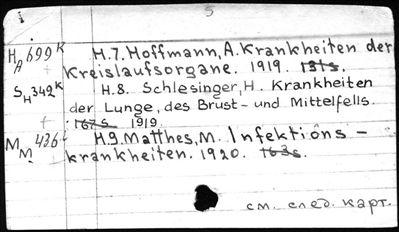 5
H A 699 K
H.7. Hoffmann, A. Krankheiten der
Kreislaufsorgane. 1919. 131s.
S H 342 K
H.8. Schlesinger, H. Krankheiten
der Lunge, des Brust- und Mittelfells.
167s. 1919.
M M 436
H.9. Matthes, M. Infektions-
krankheiten. 1920. 163s.
см. след. карт.